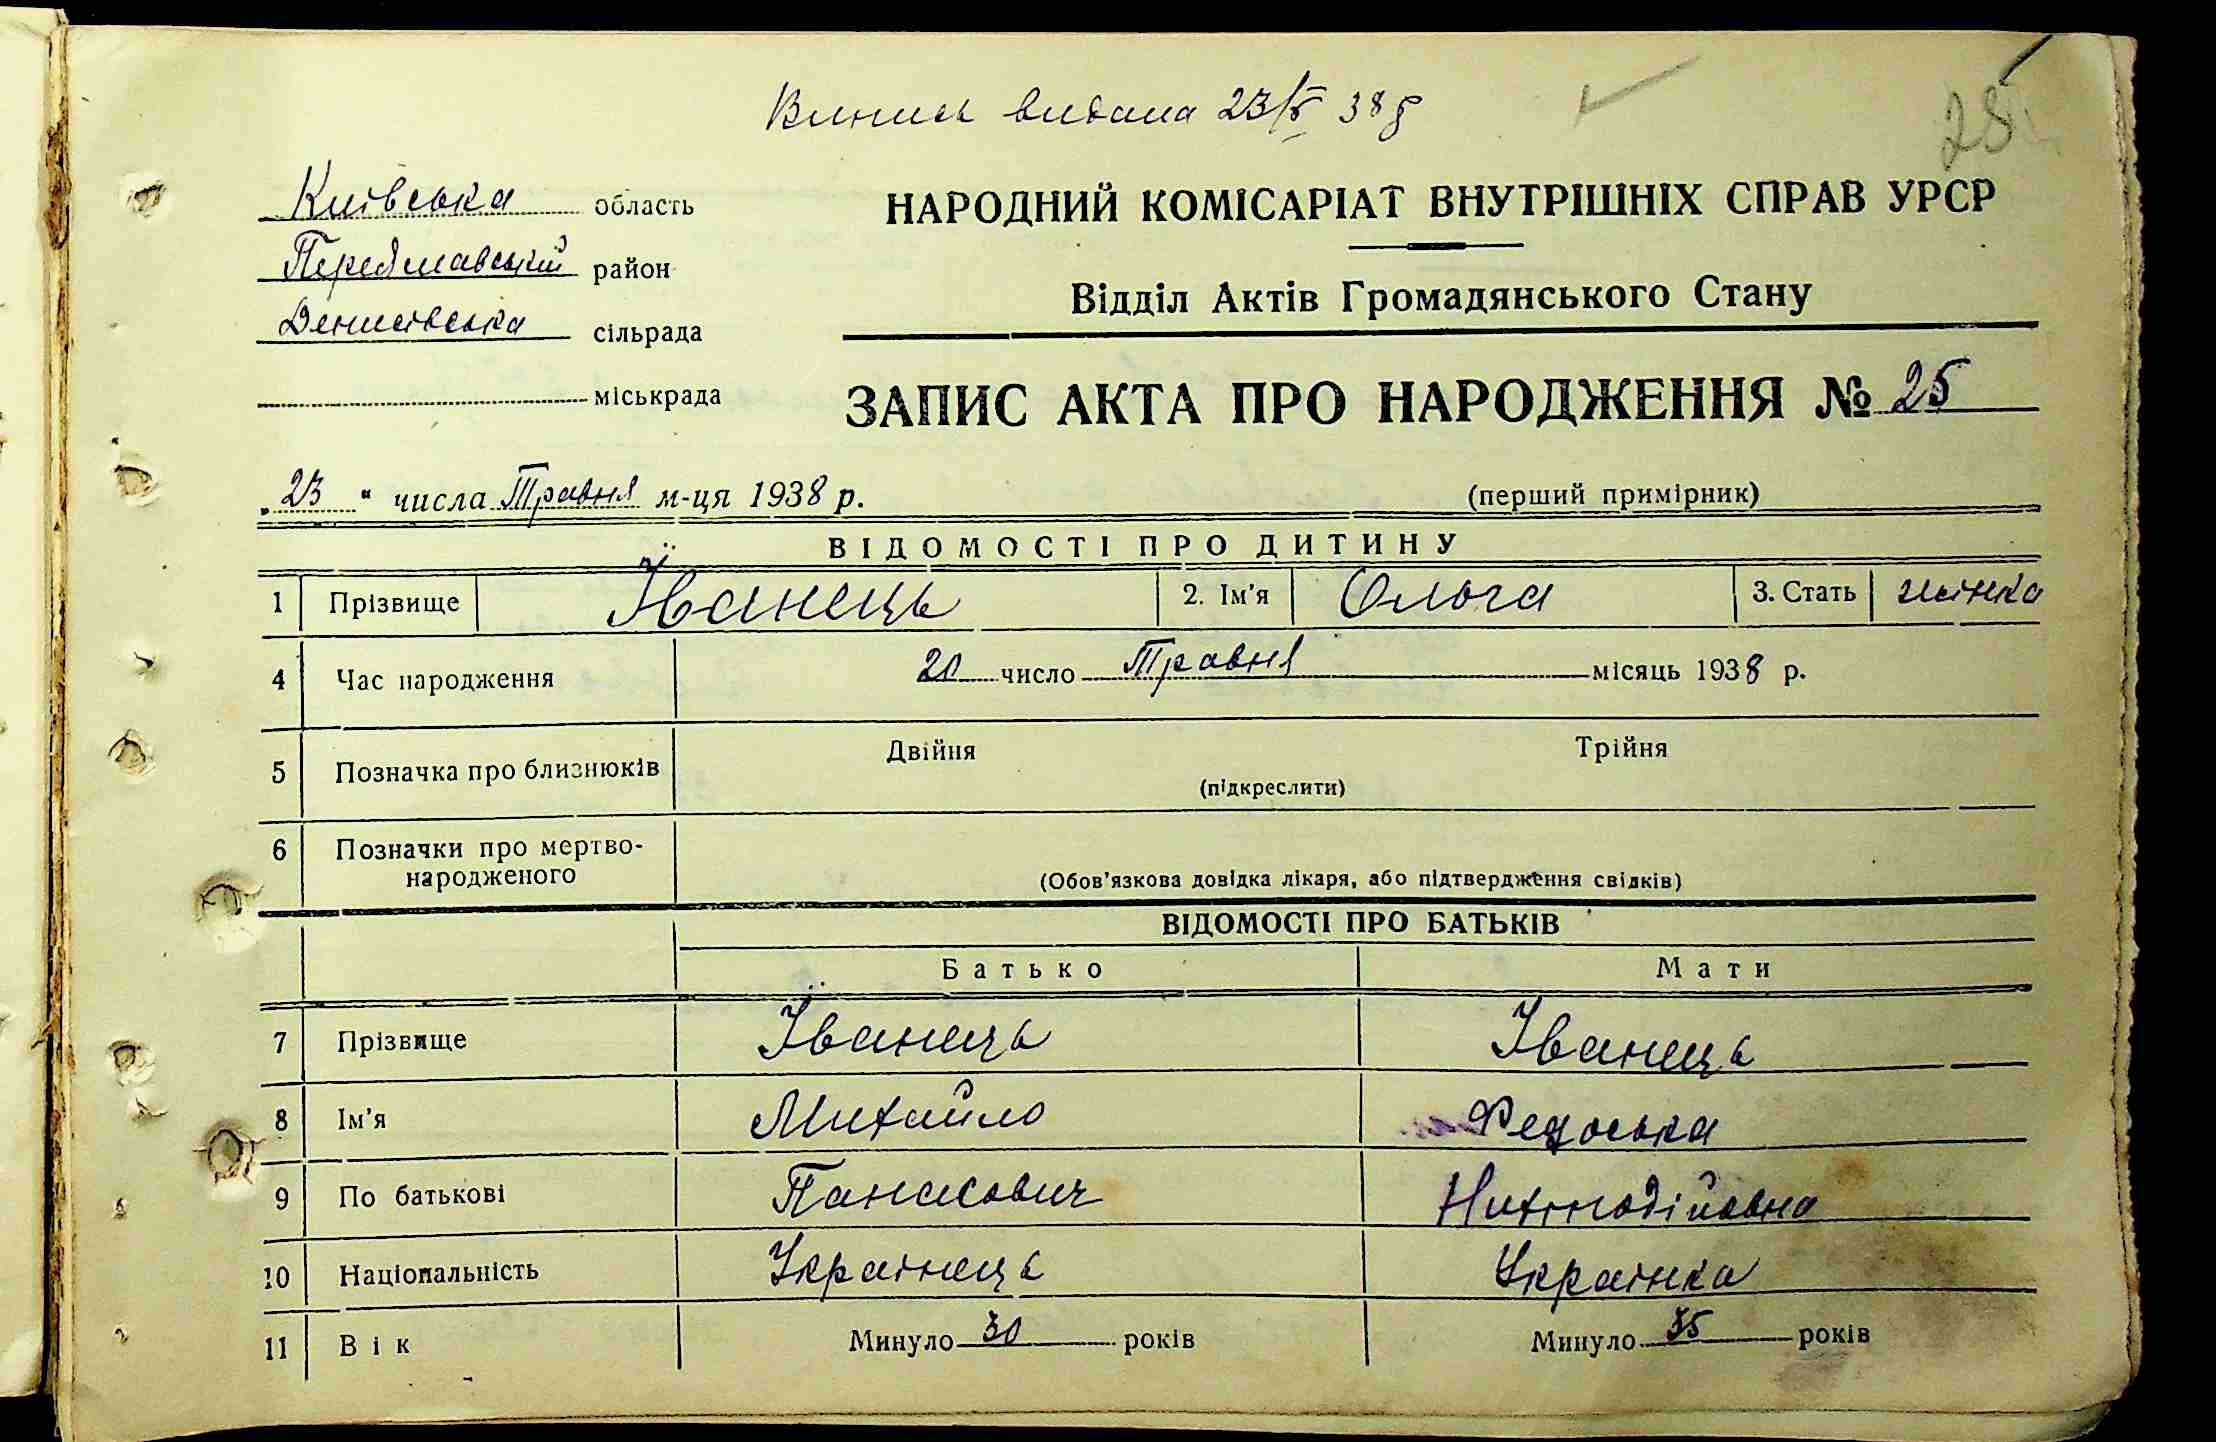 Випись видана 23/V 38 р
25
Київська область
Переяславський район
Денисівська сільрада
міськрада
НАРОДНИЙ КОМІСАРІАТ ВНУТРІШНІХ СПРАВ УРСР
Відділ Актів Громадянського Стану
ЗАПИС АКТА ПРО НАРОДЖЕННЯ № 25
„23“ числа Травня м-ця 1938 р.
(перший примірник)
ВІДОМОСТІ ПРО ДИТИНУ
1 Прізвище Їванець 2. Ім'я Ольга 3. Стать жінка
4 Час народження 20 число Травня місяць 1938 р.
5 Позначка про близнюків Двійня Трійня
(підкреслити)
6 Позначки про мертво-
народженого
(Обов'язкова довідка лікаря, або підтвердження свідків)
ВІДОМОСТІ ПРО БАТЬКІВ
Батько Мати
7 Прізвище Їванець Іванець
8 Ім'я Михайло Федоська
9 По батькові Панасович
10 Національність Українець Українка
11 Вік Минуло 30 років Минуло 35 років